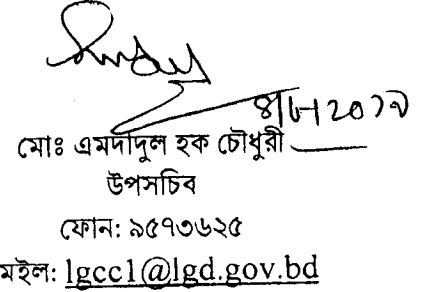 মোঃ এমদাদুল হক চৌধুরী
উপসচিব
ফোন: ৯৫৭৩৬২৫
মইল: lgcc1@lgd.gov.bd